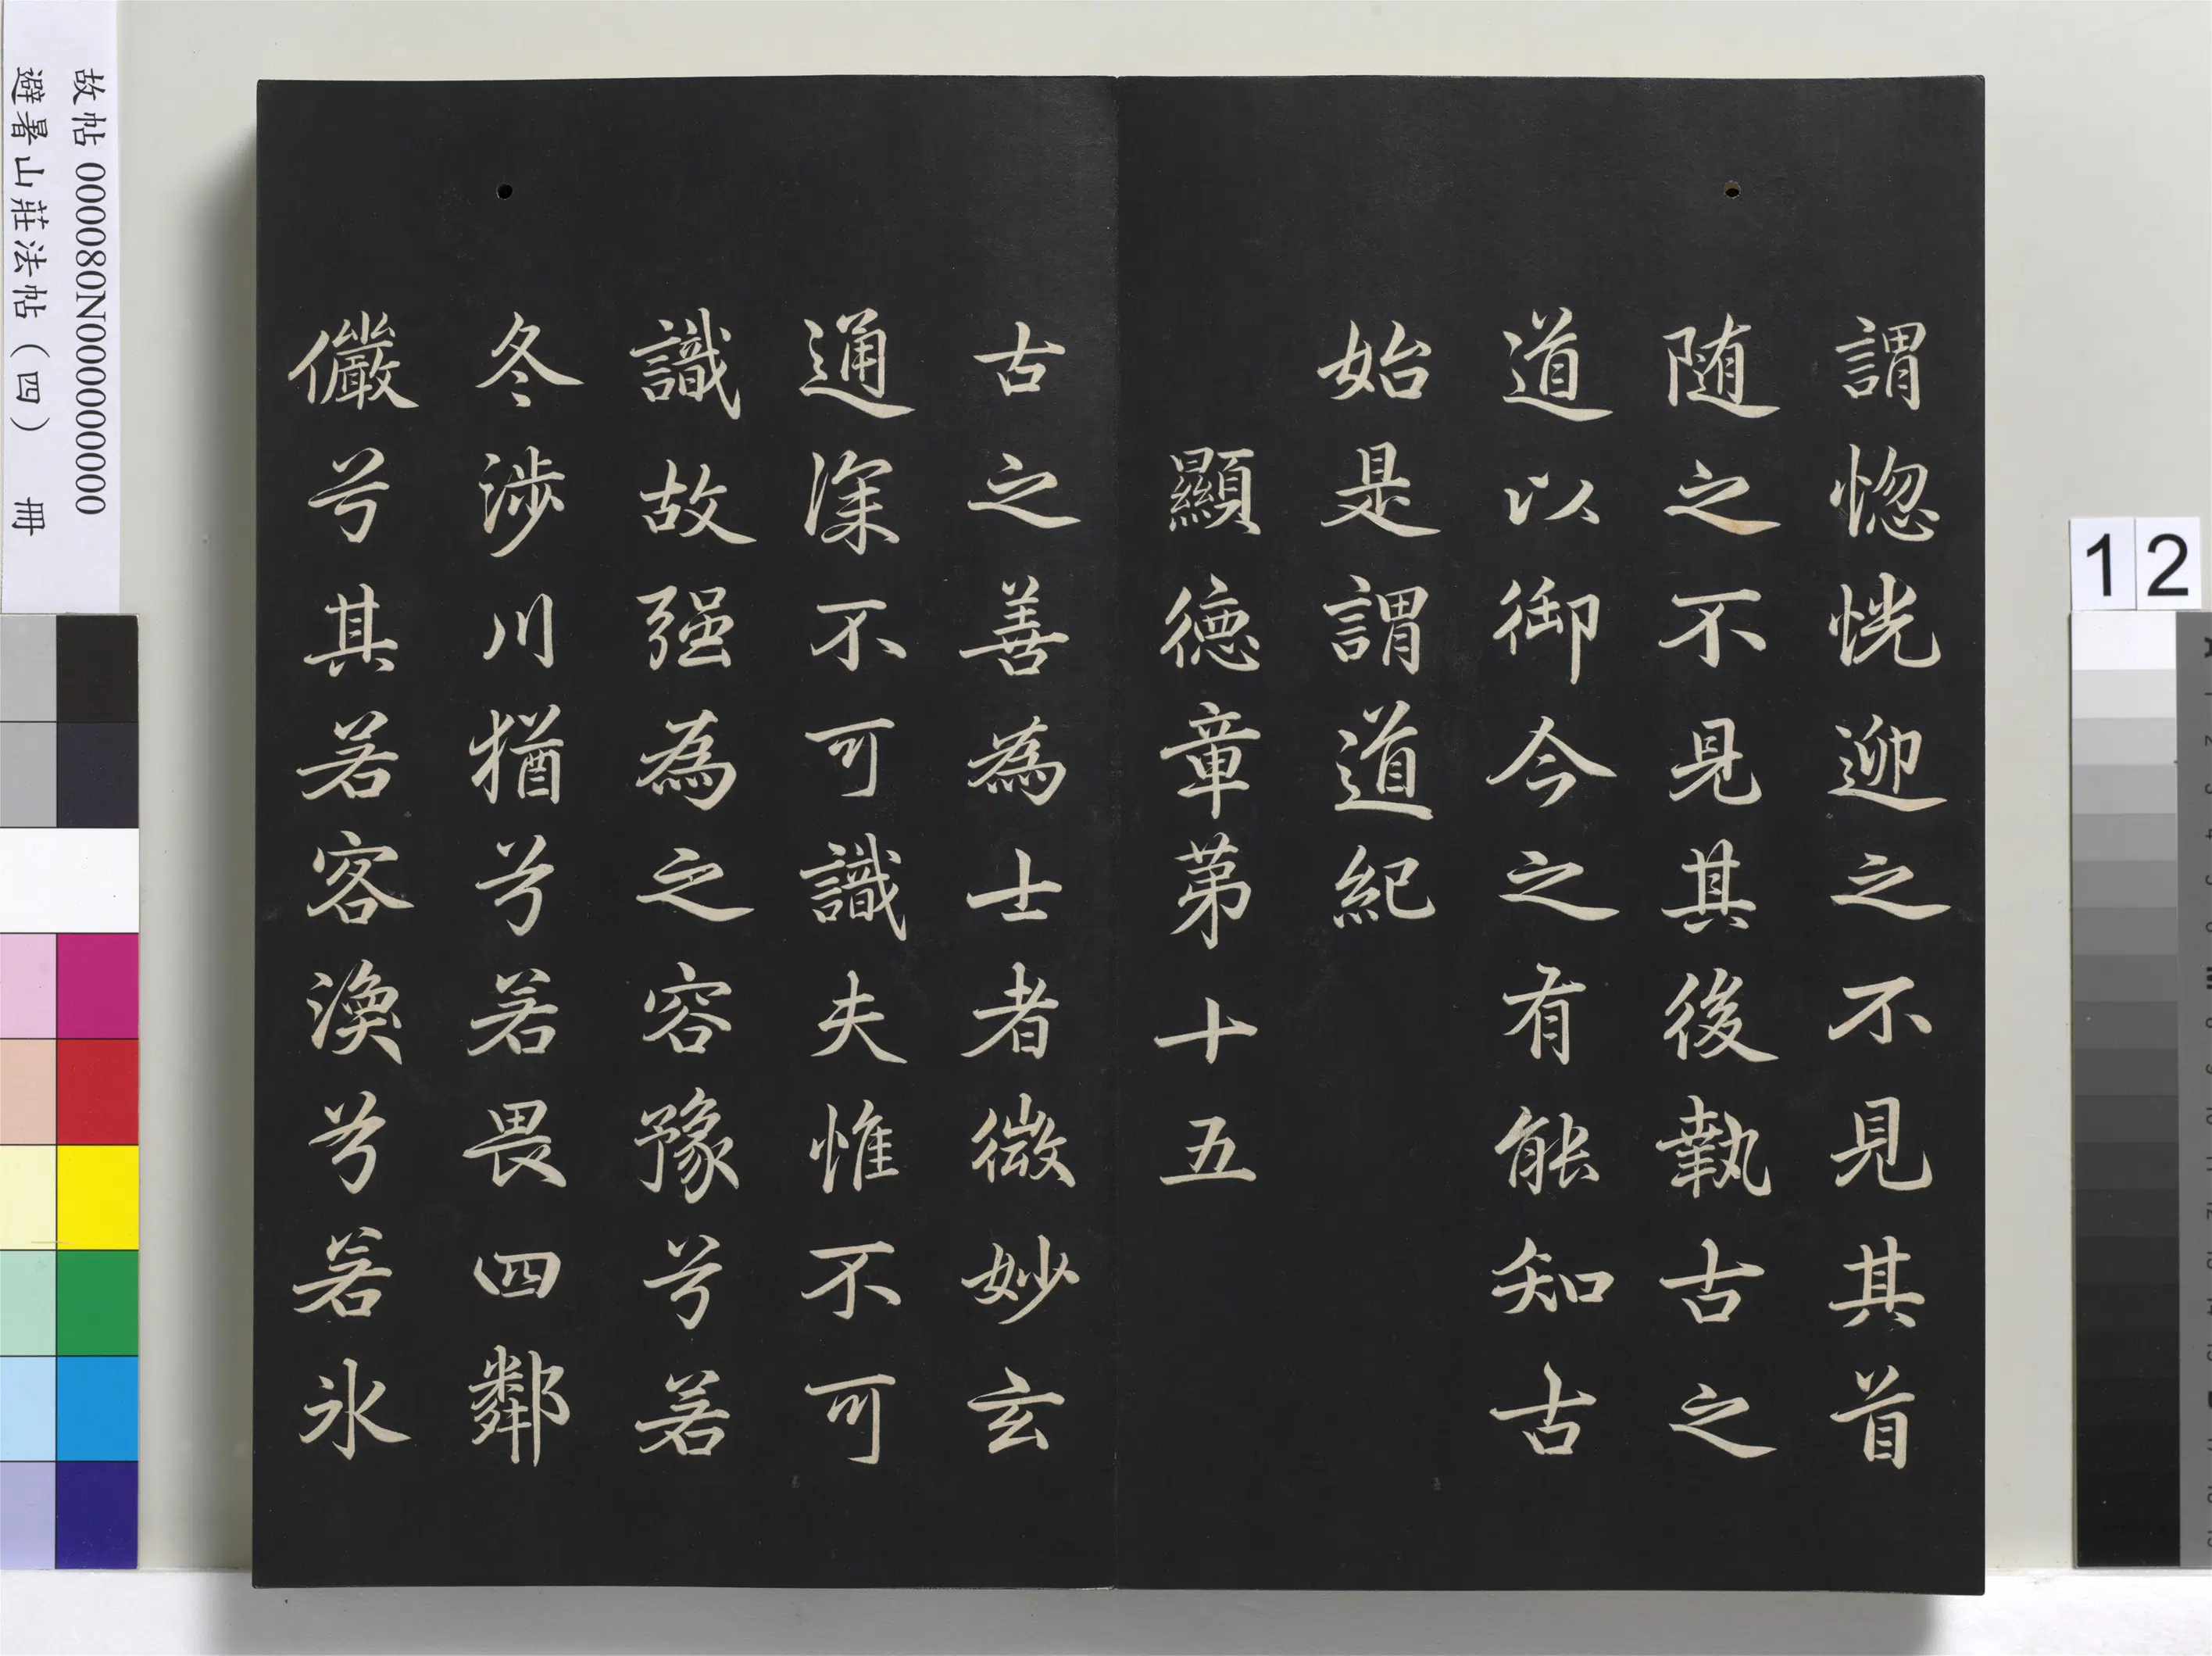 謂惚恍迎之不見其首
随之不見其後執古之
道以御今之有能知古
始是謂道紀
顯德章苐十五
古之善為士者微妙玄
通深不可識夫惟不可
識故强為之容豫兮若
冬涉川猶兮若畏四鄰
儼兮其若客渙兮若氷
故帖 000080N000000000
避暑山莊法帖（四） 冊
12